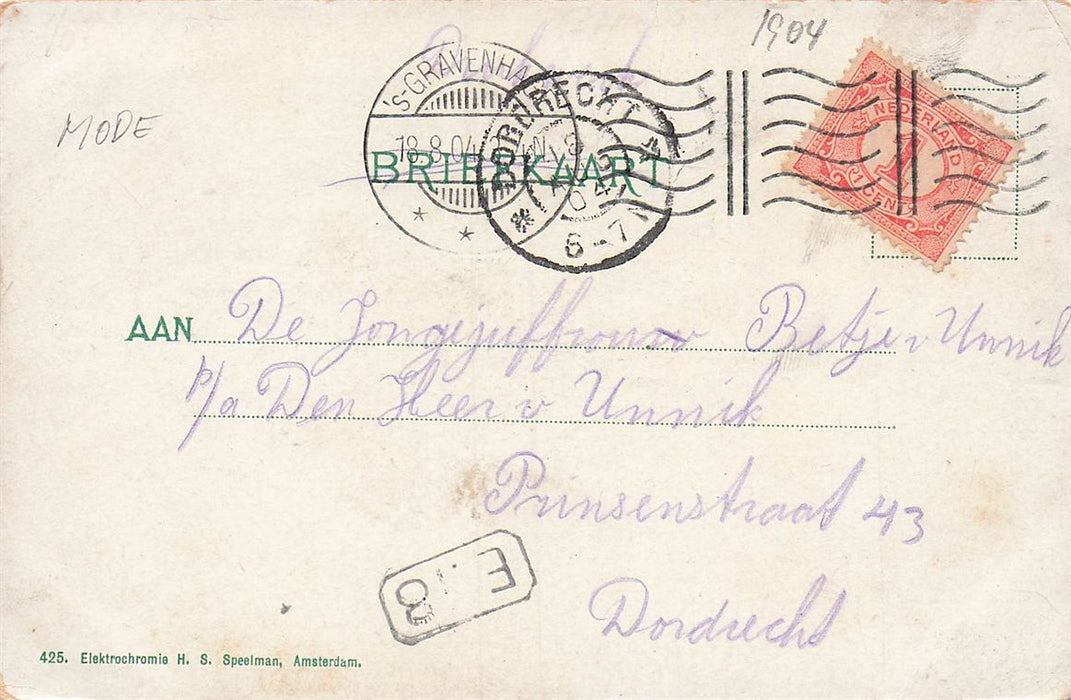 1904
MODE
's-GRAVENHA
18.8.04
DORDRECHT
6-7
NEDERLAND
1
CENT
BRIEFKAART
AAN De Jongejuffrouw Betje v Unnik
p/a Den Heer v Unnik
Prinsenstraat 43
Dordrecht
425. Elektrochromie H. S. Speelman, Amsterdam.